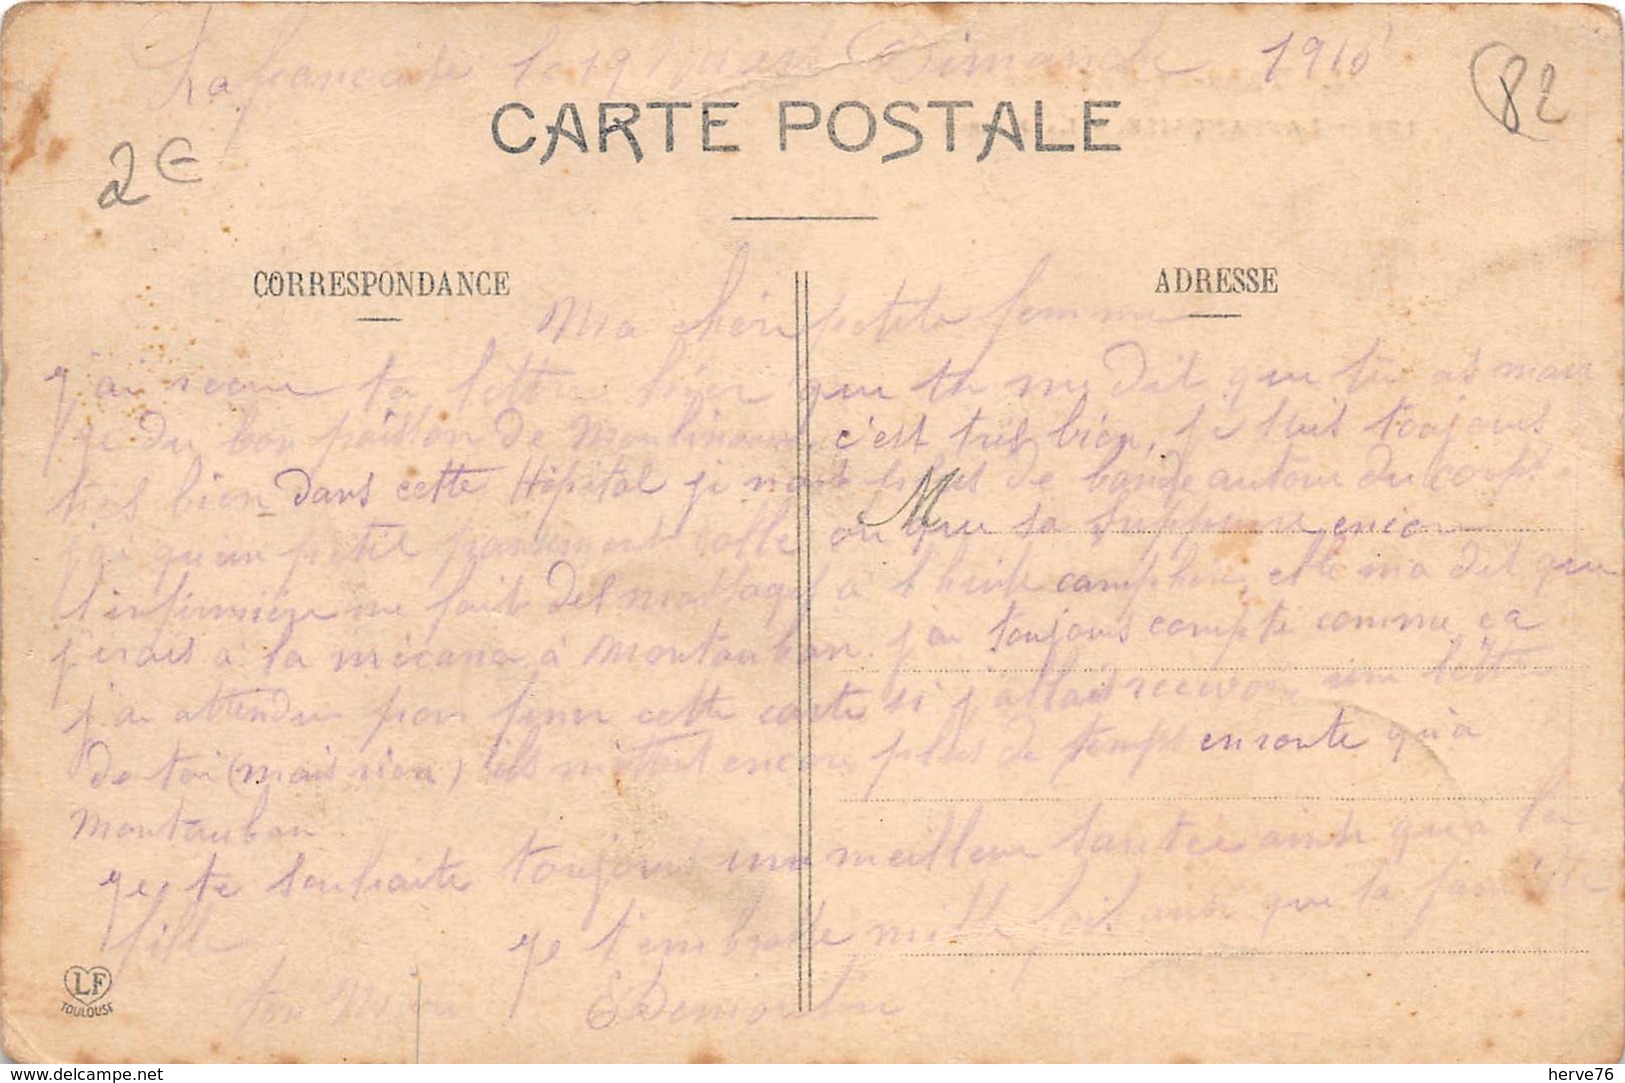 Lafrançaise le 19 Mars Dimanche 1916
82
CARTE POSTALE
2€
CORRESPONDANCE
ADRESSE
Ma chéri petite femme
j'ai recue ta lettre hier que tu me dit que tu as man
gé du bon poisson de c'est très bien, je suis toujours
très bien dans cette Hôpital je n'ai plus de bande autour du corps
j'ai qu'un petit pansement collé ou que sa suppure encore
l'infirmière me fait des massages a l'huile camphrée, elle ma dit que
j'irais a la mécano a Montauban. j'ai toujours compté comme ça
j'ai attendu pour finir cette carte si j'allais recevoir une lettre
de toi (mais rien) ils mettent encore plus de temps en route qu'a
Montauban
je te souhaite toujours une meilleur santée ainsi qu'a la
fille je t'embrasse mille fois ainsi que la famille
ton Mari
M
LF
TOULOUSE
www.delcampe.net
herve76